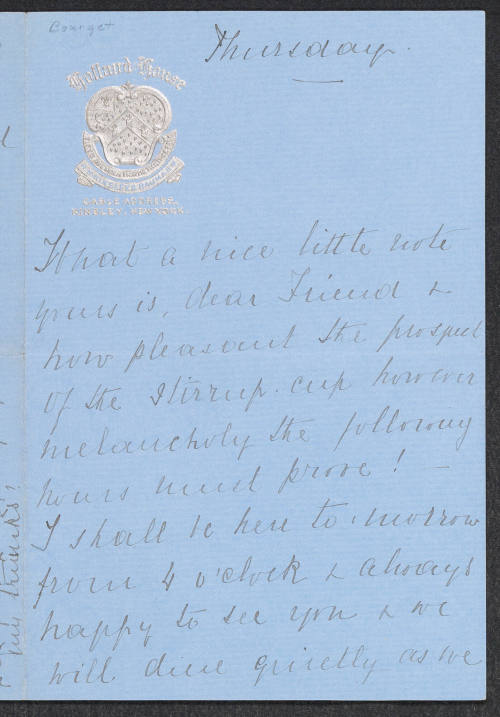 Bourget
Thursday.
Holland House
CABLE ADDRESS,
KINSLEY, NEW YORK.
What a nice little note
yours is, dear Friend &
how pleasant the prospect
of the Stirrup-cup however
melancholy the following
hours must prove! –
I shall be here to-morrow
from 4 o'clock & always
happy to see you & we
will dine quietly as we